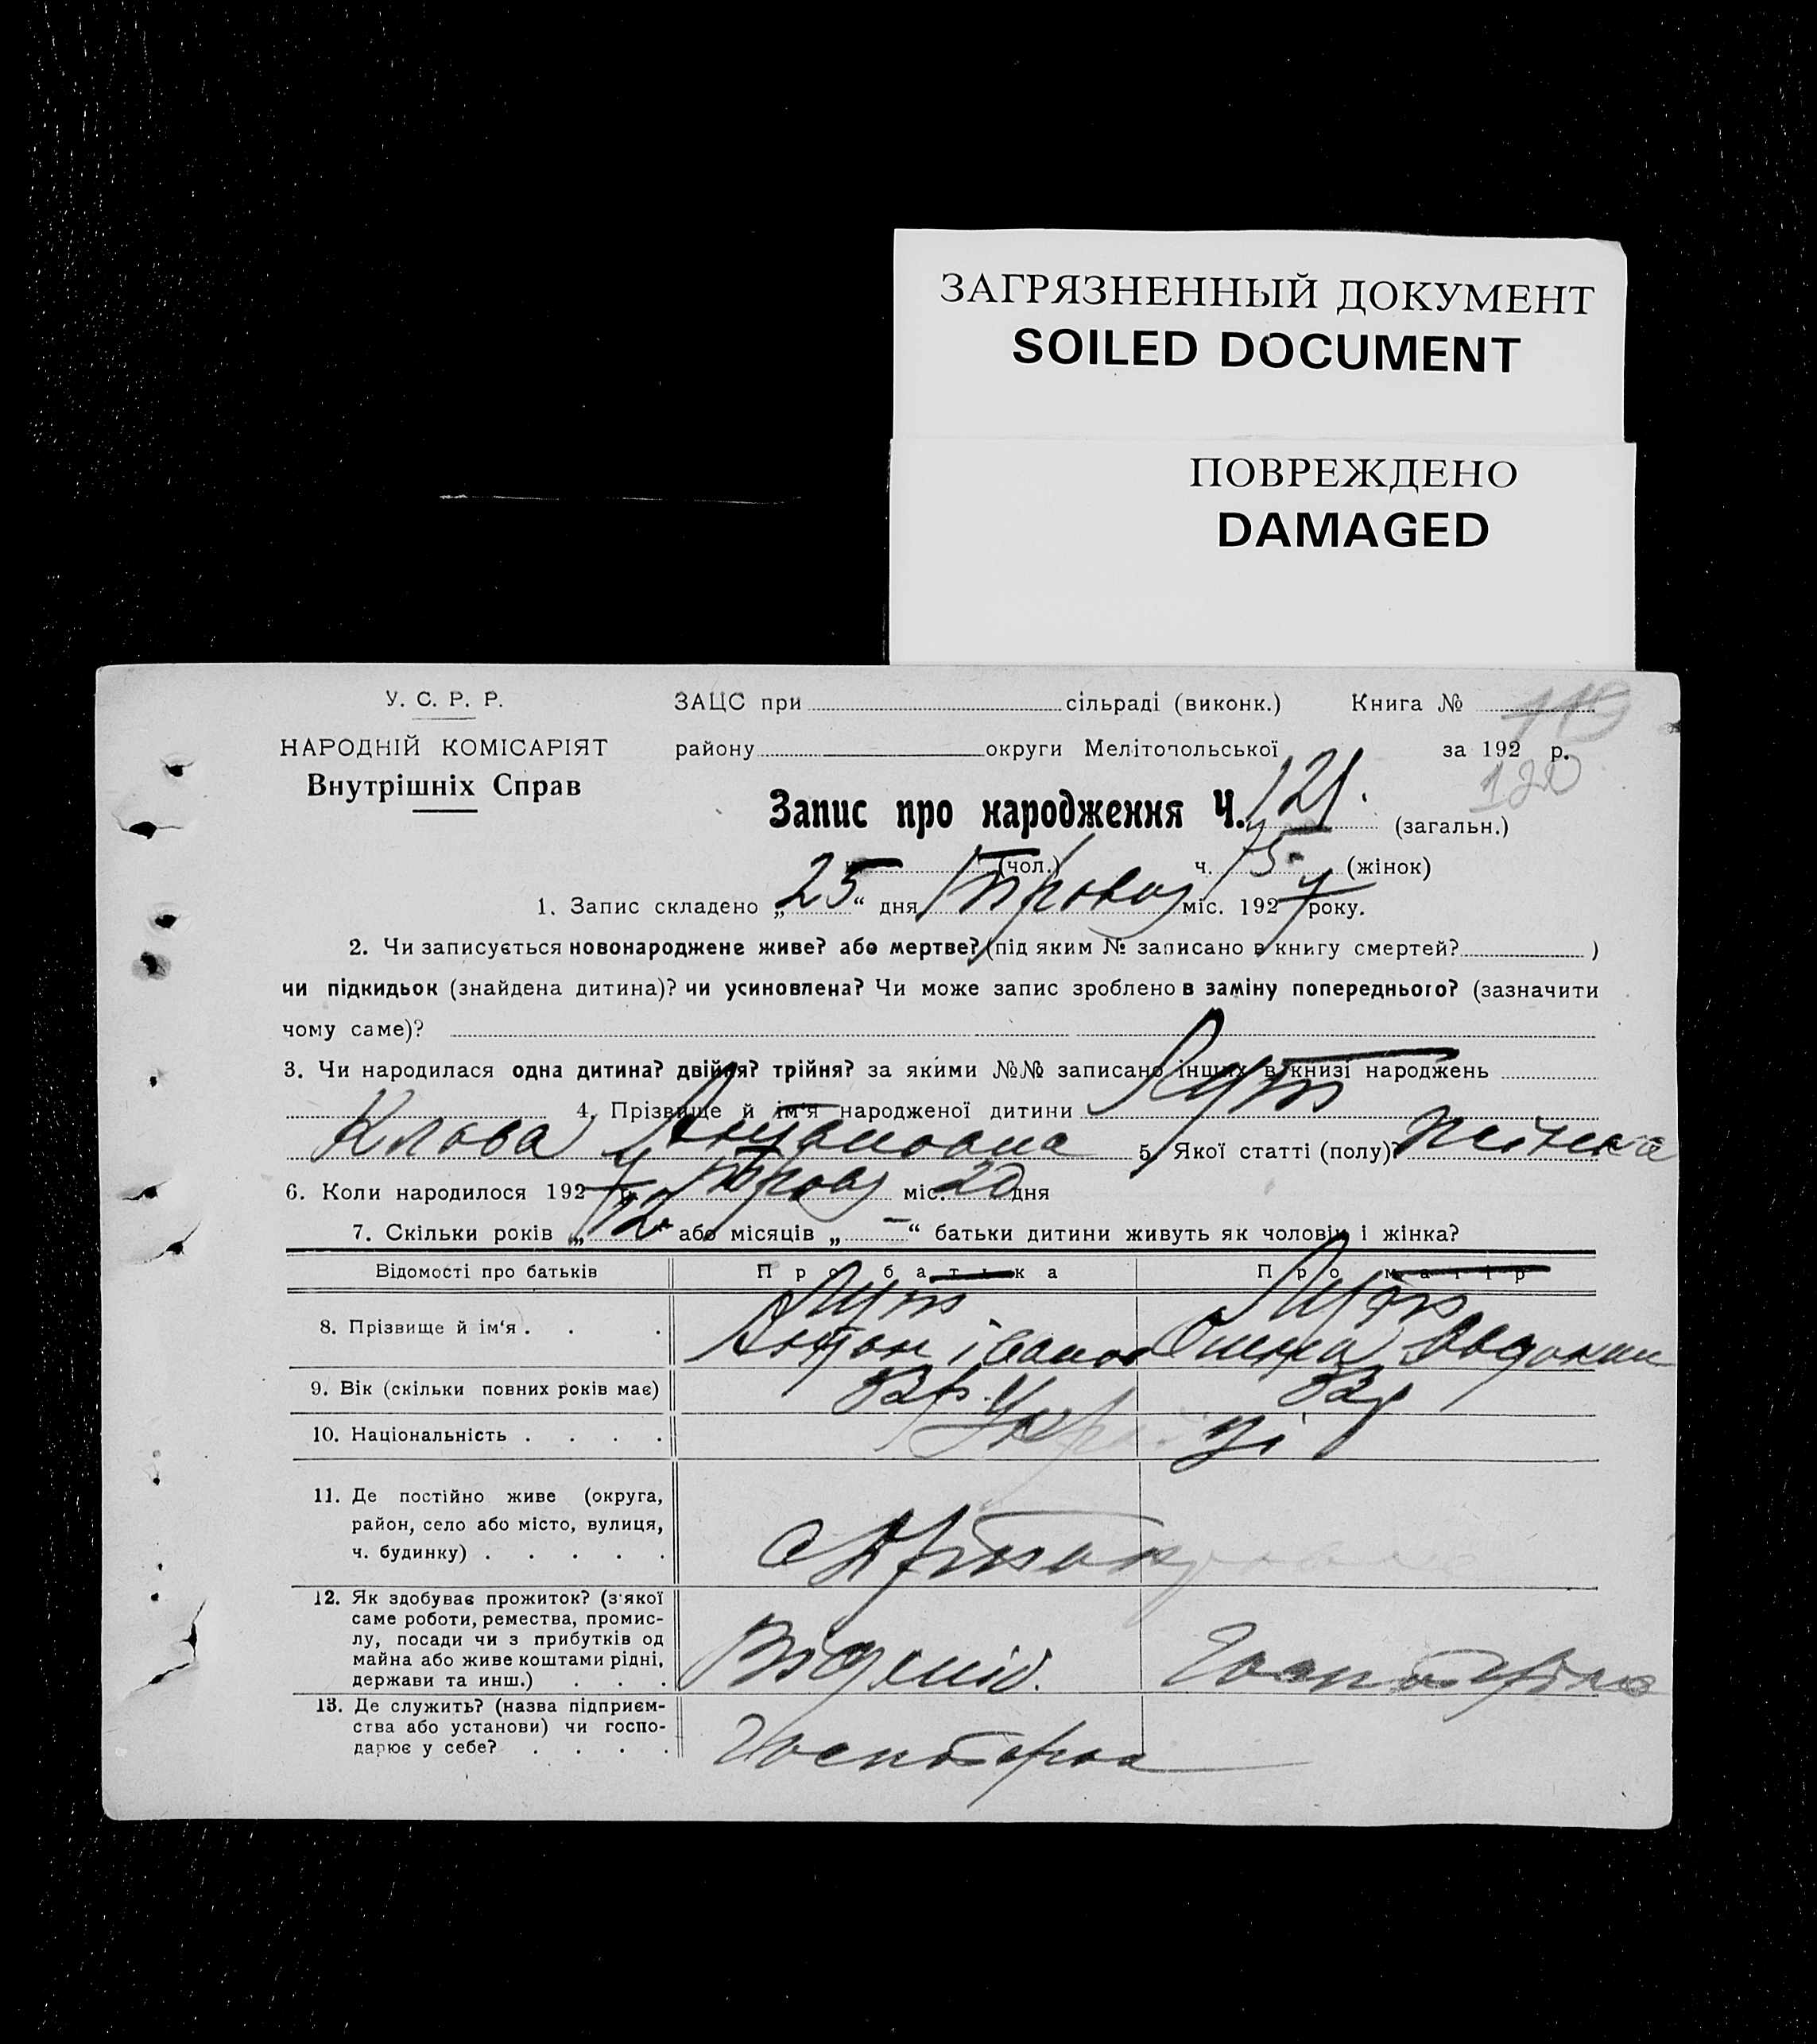 ЗАГРЯЗНЕННЫЙ ДОКУМЕНТ
SOILED DOCUMENT
ПОВРЕЖДЕНО
DAMAGED
У. С. Р. Р.
НАРОДНІЙ КОМІСАРІЯТ
Внутрішніх Справ
ЗАЦС при сільраді (виконк.) Книга № 119
району округи Мелітопольської за 192 р.
120
Запис про народження Ч. 121. (загальн.)
(чол.) ч. 75 (жінок)
1. Запис складено „25“ дня міс. 1927 року.
2. Чи записується новонароджене живе? або мертве? (під яким № записано в книгу смертей? )
чи підкидьок (знайдена дитина)? чи усиновлена? Чи може запис зроблено в заміну попереднього? (зазначити
чому саме)?
3. Чи народилася одна дитина? двійня? трійня? за якими №№ записано інших в книзі народжень
4. Прізвище й ім'я народженої дитини
Клава Антановна 5. Якої статті (полу)? жінка
6. Коли народилося 1927 р. міс. 20 дня
7. Скільки років „12“ або місяців „—“ батьки дитини живуть як чоловік і жінка?
Відомості про батьків Про батька Про матір
8. Прізвище й ім'я . . .
Антон Іванов
9. Вік (скільки повних років має) 32
10. Національність . . . . Украйнці
11. Де постійно живе (округа,
район, село або місто, вулиця,
ч. будинку) . . . . .
12. Як здобуває прожиток? (з'якої
саме роботи, ремества, промис-
лу, посади чи з прибутків од
майна або живе коштами рідні,
держави та инш.) . . .
13. Де служить? (назва підприєм-
ства або установи) чи госпо-
дарює у себе? . . . .